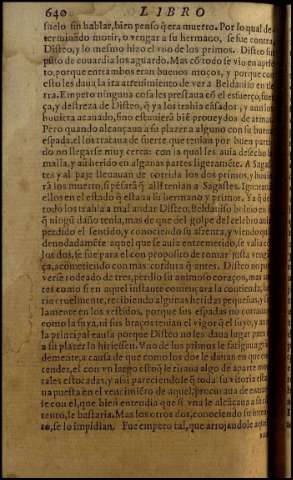 640 LIBRO
suelo sin hablar, bien pensò q̃ era muerto. Por lo qual de
terminando morir, o vengar a su hermano, se fue contra
Disteo, y lo mesmo hizo el vno de los primos. Disteo sin
de couardia los aguardo. Mas cõ todo se vio en
to, porque entrambos eran buenos moços, y porque con
esto les daua la ira atreuimiento de ver a Beldanio en tie
rra. Empero ninguna cosa les prestaua cõ el esfuerço, fuer
ça, y destreza de Disteo, q̃ ya los trahia cãsados, y aun los
houiera acauado, sino estuuierã biẽ proueydos de
Pero quando alcançaua a su plazer a alguno con su buena
espada, el los trataua de suerte, que tenian por buen parti
do no llegarse muy cerca: con la qual les auia desecho la
malla, y aũ herido en algunas partes ligeramẽte. A Sagas
tes y al paje lleuauan de corrida los dos primos, y
rã los muerto, si pẽsarã q̃ alli tenian a Sagastes. Ignorauã
ellos en el estado q̃ estaua su hermano y primo. Ya q̃ de
todo los trahia a mal andar Disteo, Beldanio boluio en si
q̃ ningũ daño tenia, mas de que del golpe del celebro auia
perdido el sentido, y conociendo su afrenta, y viendo quã
denodadamẽte aquel que se auia entremetido, se valia de
los dos, se fue para el con proposito de tomar justa vengã
ça, acometiendo con mas cordura q̃ antes. Disteo no por
verse rodeado de tres, perdio su animoso coraçon, mas an
tes como si en aquel instante començara la contienda, los
rio cruelmente, recibiendo algunas heridas pequeñas, y
lamente en los vestidos, porque sus espadas no cortauan
como la suya, ni sus braços tenian el vigor q̃ el suyo, y aun
la principal causa porque Disteo no les daua lugar para
a su plazer lo hiriessen. Vno de los primos le fatigaua
demente, a causa de que como los dos le dauan en que en
tender, el con vn largo estoq̃ le tiraua algo de aparte mor
tales estocadas, y assi pareciendole q̃ toda su vitoria esta
ua puesta en el vencimiẽto de aquel, procuraua de
se con el, que bien entendia que si vna le alcãçaua a su con
tento, le bastaria. Mas los otros dos, conociendo su inten
to, se lo impidian. Fue empero tal, que arrojandole aquel